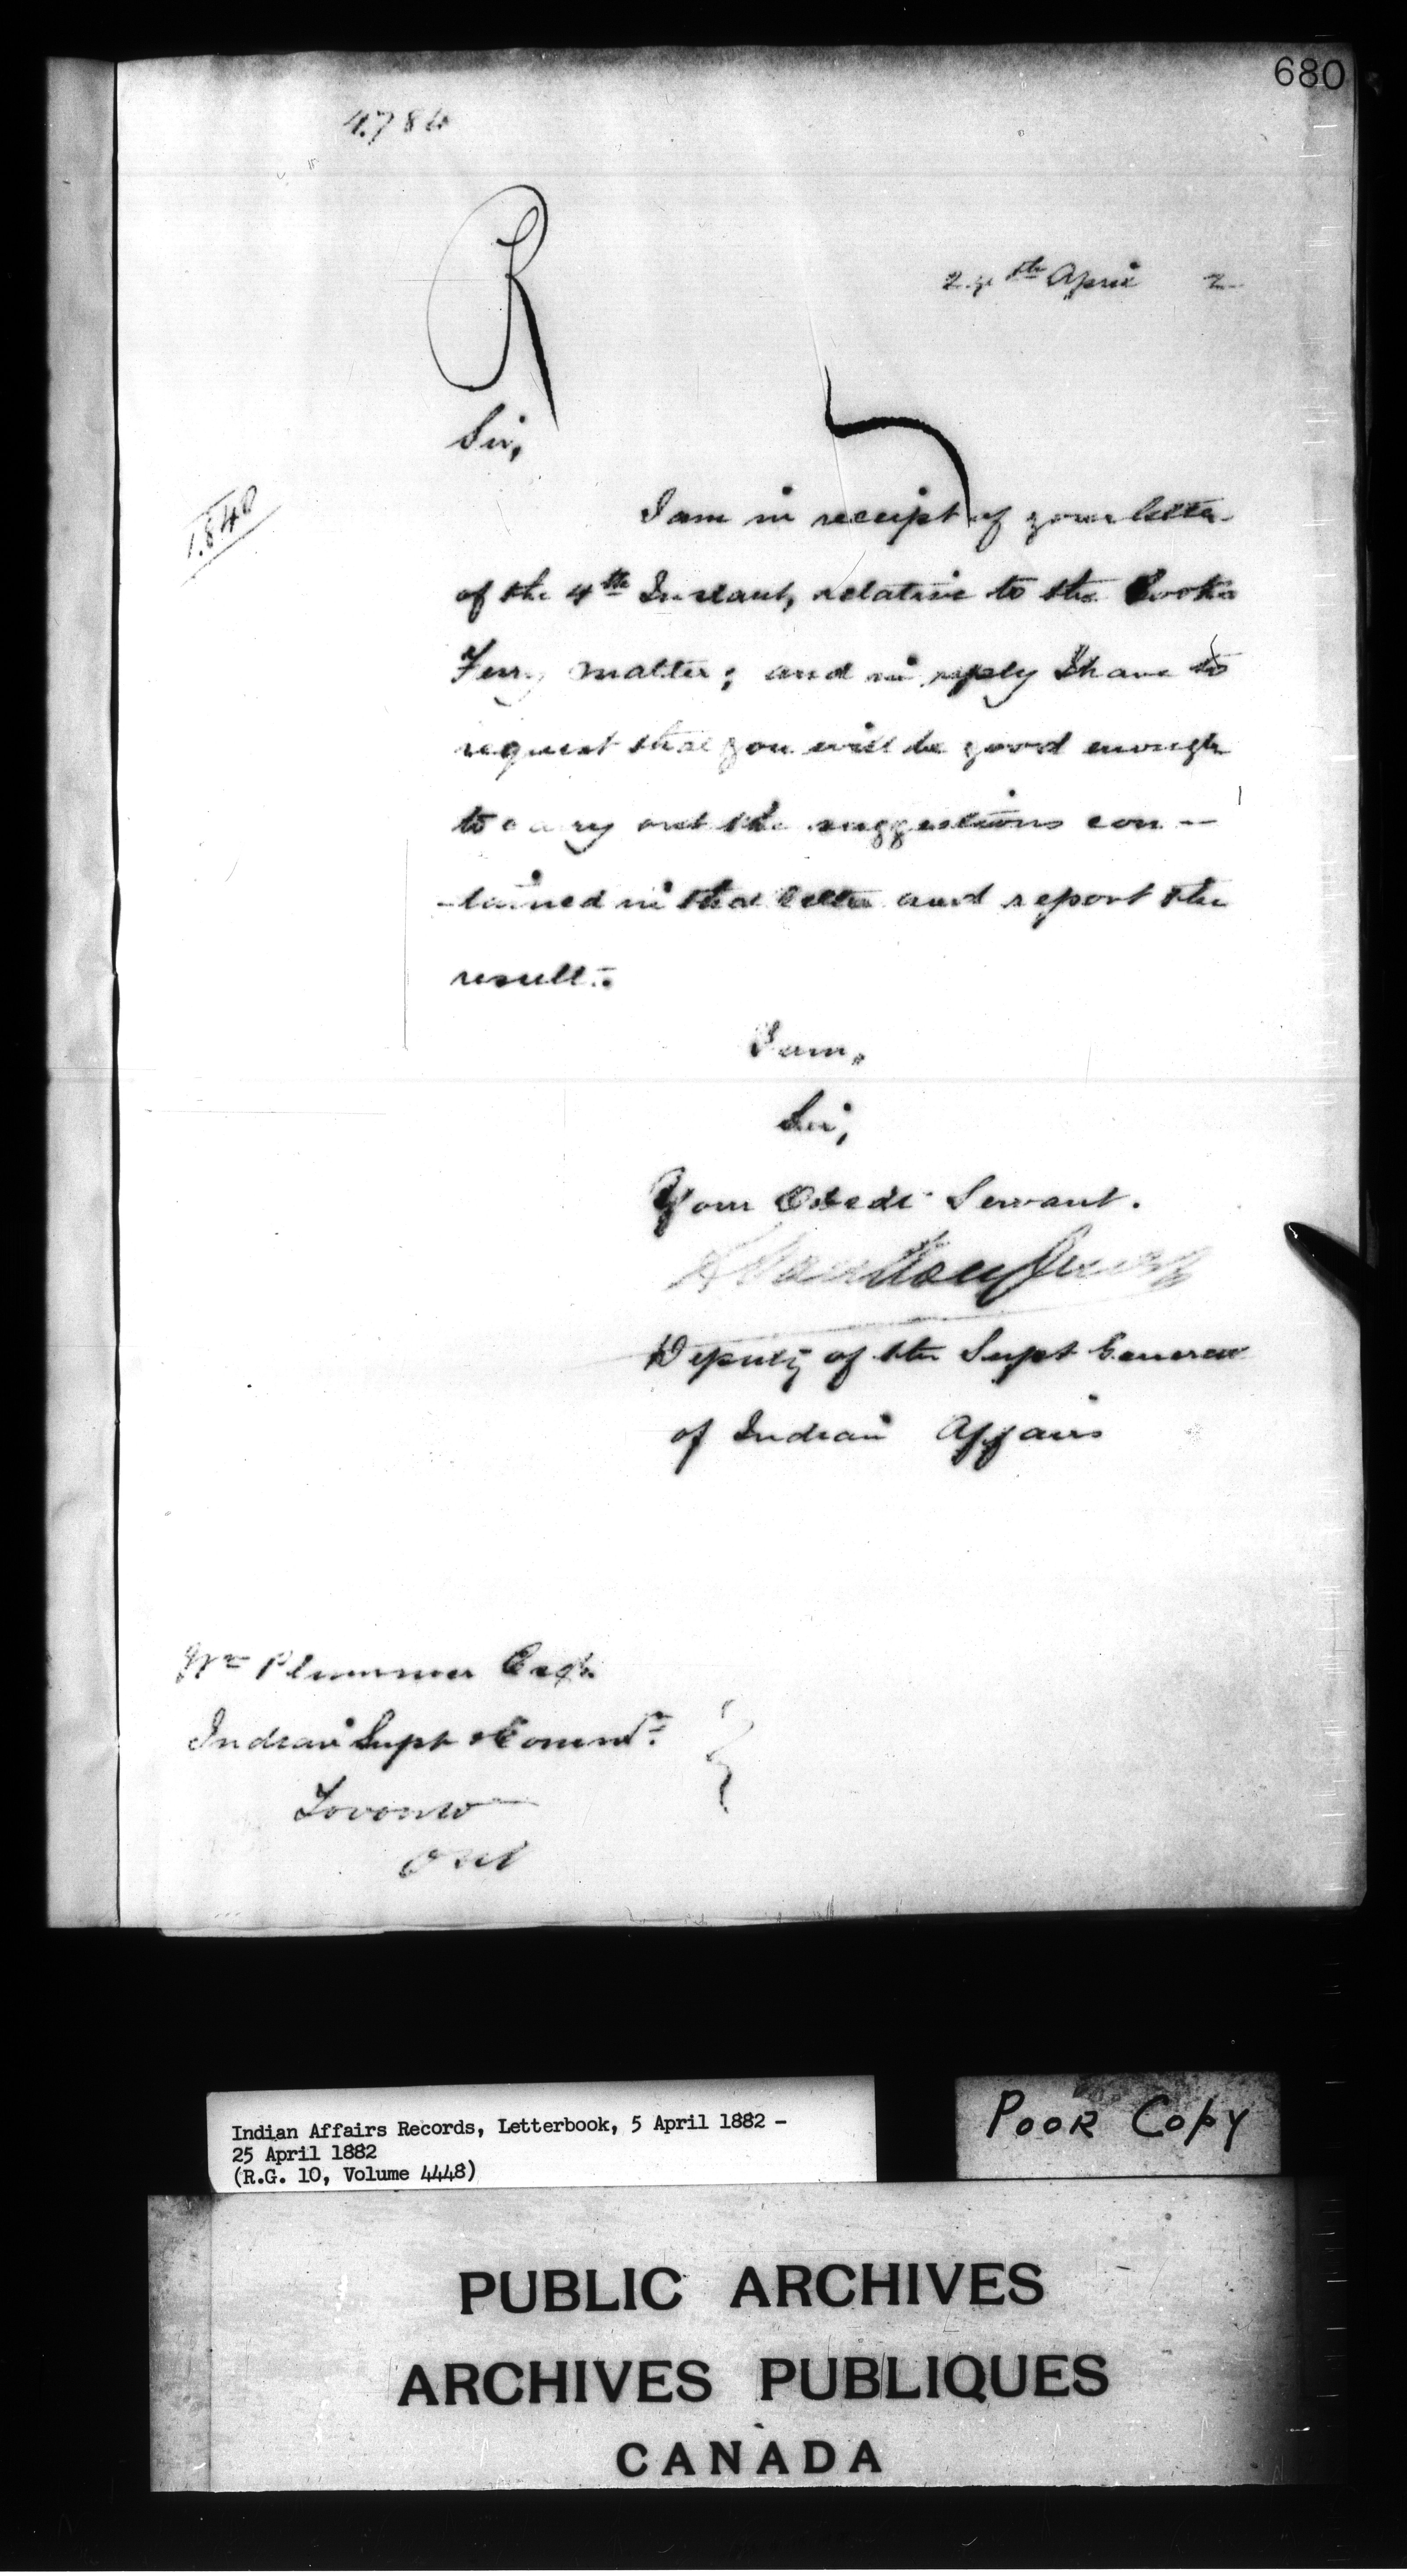 680
R
24th April 2
Sir,
1.840
I am in receipt of your letter
of the 4th Instant, relative to the
Ferry matter; and in reply I have to
request that you will be good enough
to carry out the suggestions con-
-tained in that letter and report the
result.
I am,
Sir,
Your Obedt Servant.
Deputy of the Supt General
of Indian Affairs
Wm Plummer Esqr.
Indian Supt & Commr.
Toronto
Ont
Indian Affairs Records, Letterbook, 5 April 1882 -
25 April 1882
(R.G. 10, Volume 4448)
POOR COPY
PUBLIC ARCHIVES
ARCHIVES PUBLIQUES
CANADA